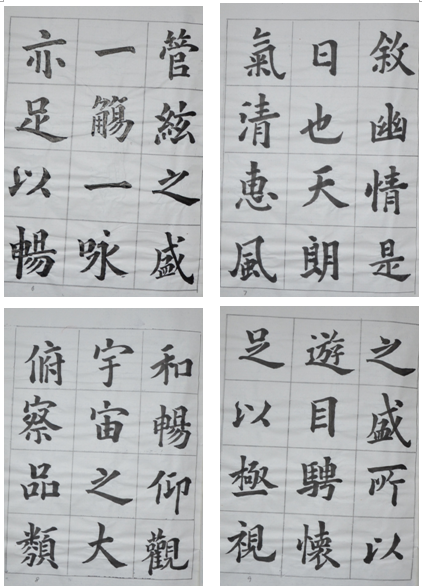 管絃之盛
一觴一咏
亦足以暢
敘幽情是
日也天朗
氣清惠風
和暢仰觀
宇宙之大
俯察品類
之盛所以
遊目騁懷
足以極視